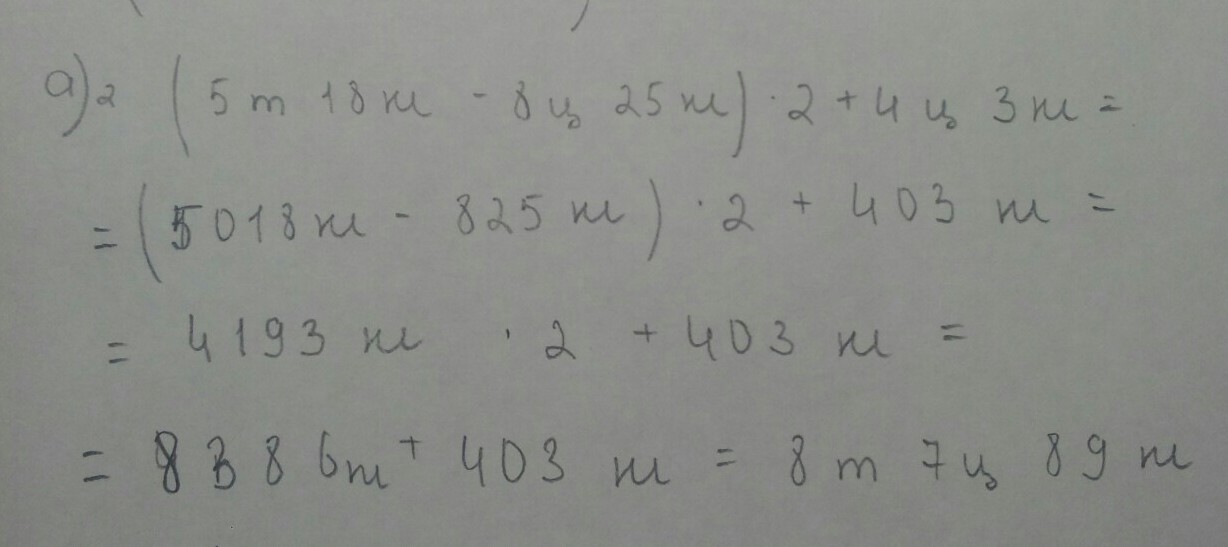 а)2 (5 т 18 кг - 8 ц 25 кг) · 2 + 4 ц 3 кг =
= (5018 кг - 825 кг) · 2 + 403 кг =
= 4193 кг · 2 + 403 кг =
= 8386 кг + 403 кг = 8 т 7 ц 89 кг